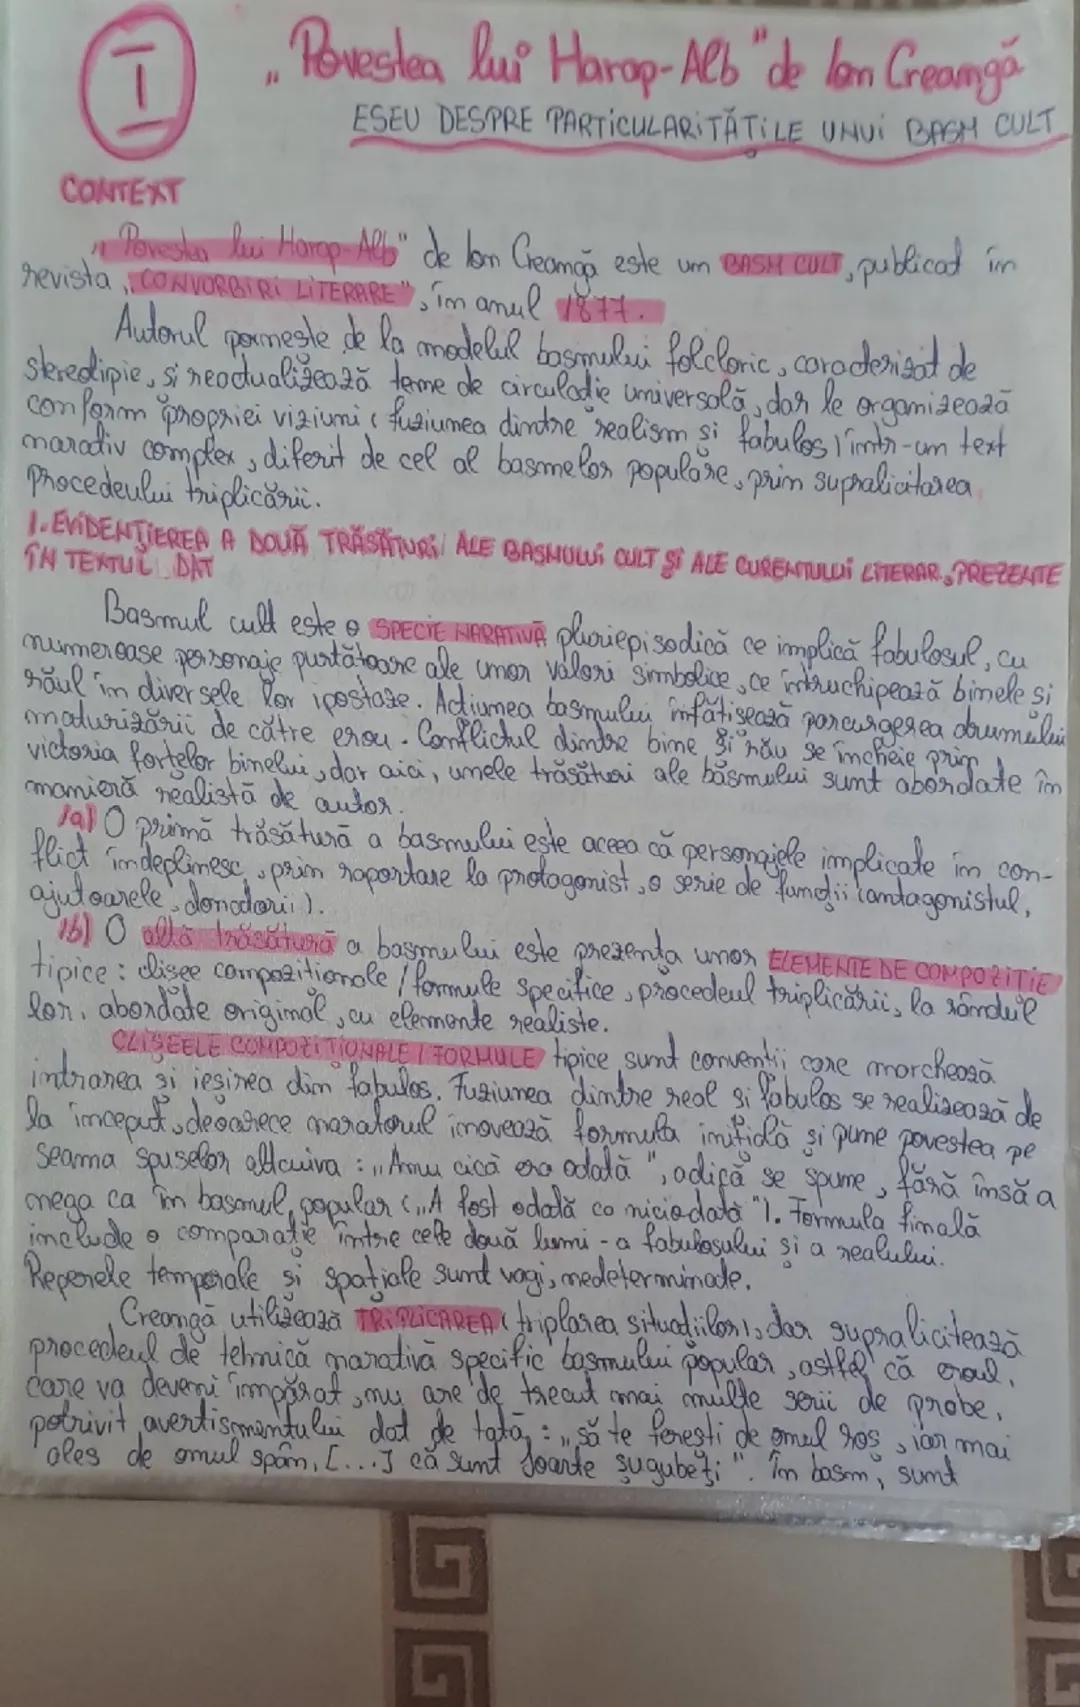 I
„Povestea lui Harap-Alb" de Ion Creangă
ESEU DESPRE PARTICULARITĂȚILE UNUI BASM CULT
CONTEXT
„Povestea lui Harap-Alb" de Ion Creangă este un BASM CULT, publicat în
revista „CONVORBIRI LITERARE", în anul 1877.
Autorul pornește de la modelul basmului folcloric, caracterizat de
stereotipie, și reactualizează teme de circulație universală, dar le organizează
conform propriei viziuni (fuziunea dintre realism și fabulos) într-un text
narativ complex, diferit de cel al basmelor populare, prin supralicitarea
procedeului triplicării.
1. EVIDENȚIEREA A DOUĂ TRĂSĂTURI ALE BASMULUI CULT ȘI ALE CURENTULUI LITERAR, PREZENTE
ÎN TEXTUL DAT
Basmul cult este o SPECIE NARATIVĂ pluriepisodică ce implică fabulosul, cu
numeroase personaje purtătoare ale unor valori simbolice, ce întruchipează binele și
răul în diversele lor ipostaze. Acțiunea basmului înfățișează parcurgerea drumului
maturizării de către erou. Conflictul dintre bine și rău se încheie prin
victoria forțelor binelui, dar aici, unele trăsături ale basmului sunt abordate în
manieră realistă de autor.
1a) O primă trăsătură a basmului este aceea că personajele implicate în con-
flict îndeplinesc, prin raportare la protagonist, o serie de funcții (antagonistul,
ajutoarele, donatorii).
1b) O altă trăsătură a basmului este prezența unor ELEMENTE DE COMPOZIȚIE
tipice: clișee compoziționale / formule specifice, procedeul triplicării, la rândul
lor, abordate original, cu elemente realiste.
CLIȘEELE COMPOZIȚIONALE / FORMULE tipice sunt convenții care marchează
intrarea și ieșirea din fabulos. Fuziunea dintre real și fabulos se realizează de
la început, deoarece naratorul inovează formula inițială și pune povestea pe
seama spuselor altcuiva: „Amu cică era odată", adică se spune, fără însă a
nega ca în basmul popular („A fost odată ca niciodată"). Formula finală
include o comparație între cele două lumi - a fabulosului și a realului.
Reperele temporale și spațiale sunt vagi, nedeterminate.
Creangă utilizează TRIPLICAREA (triplarea situațiilor), dar supralicitează
procedeul de tehnică narativă specific basmului popular, astfel că eroul,
care va deveni împărat, nu are de trecut mai multe serii de probe,
potrivit avertismentului dat de tată: „să te ferești de omul roș, iar mai
ales de omul spân, [...] că sunt foarte șugubeți". În basm, sunt